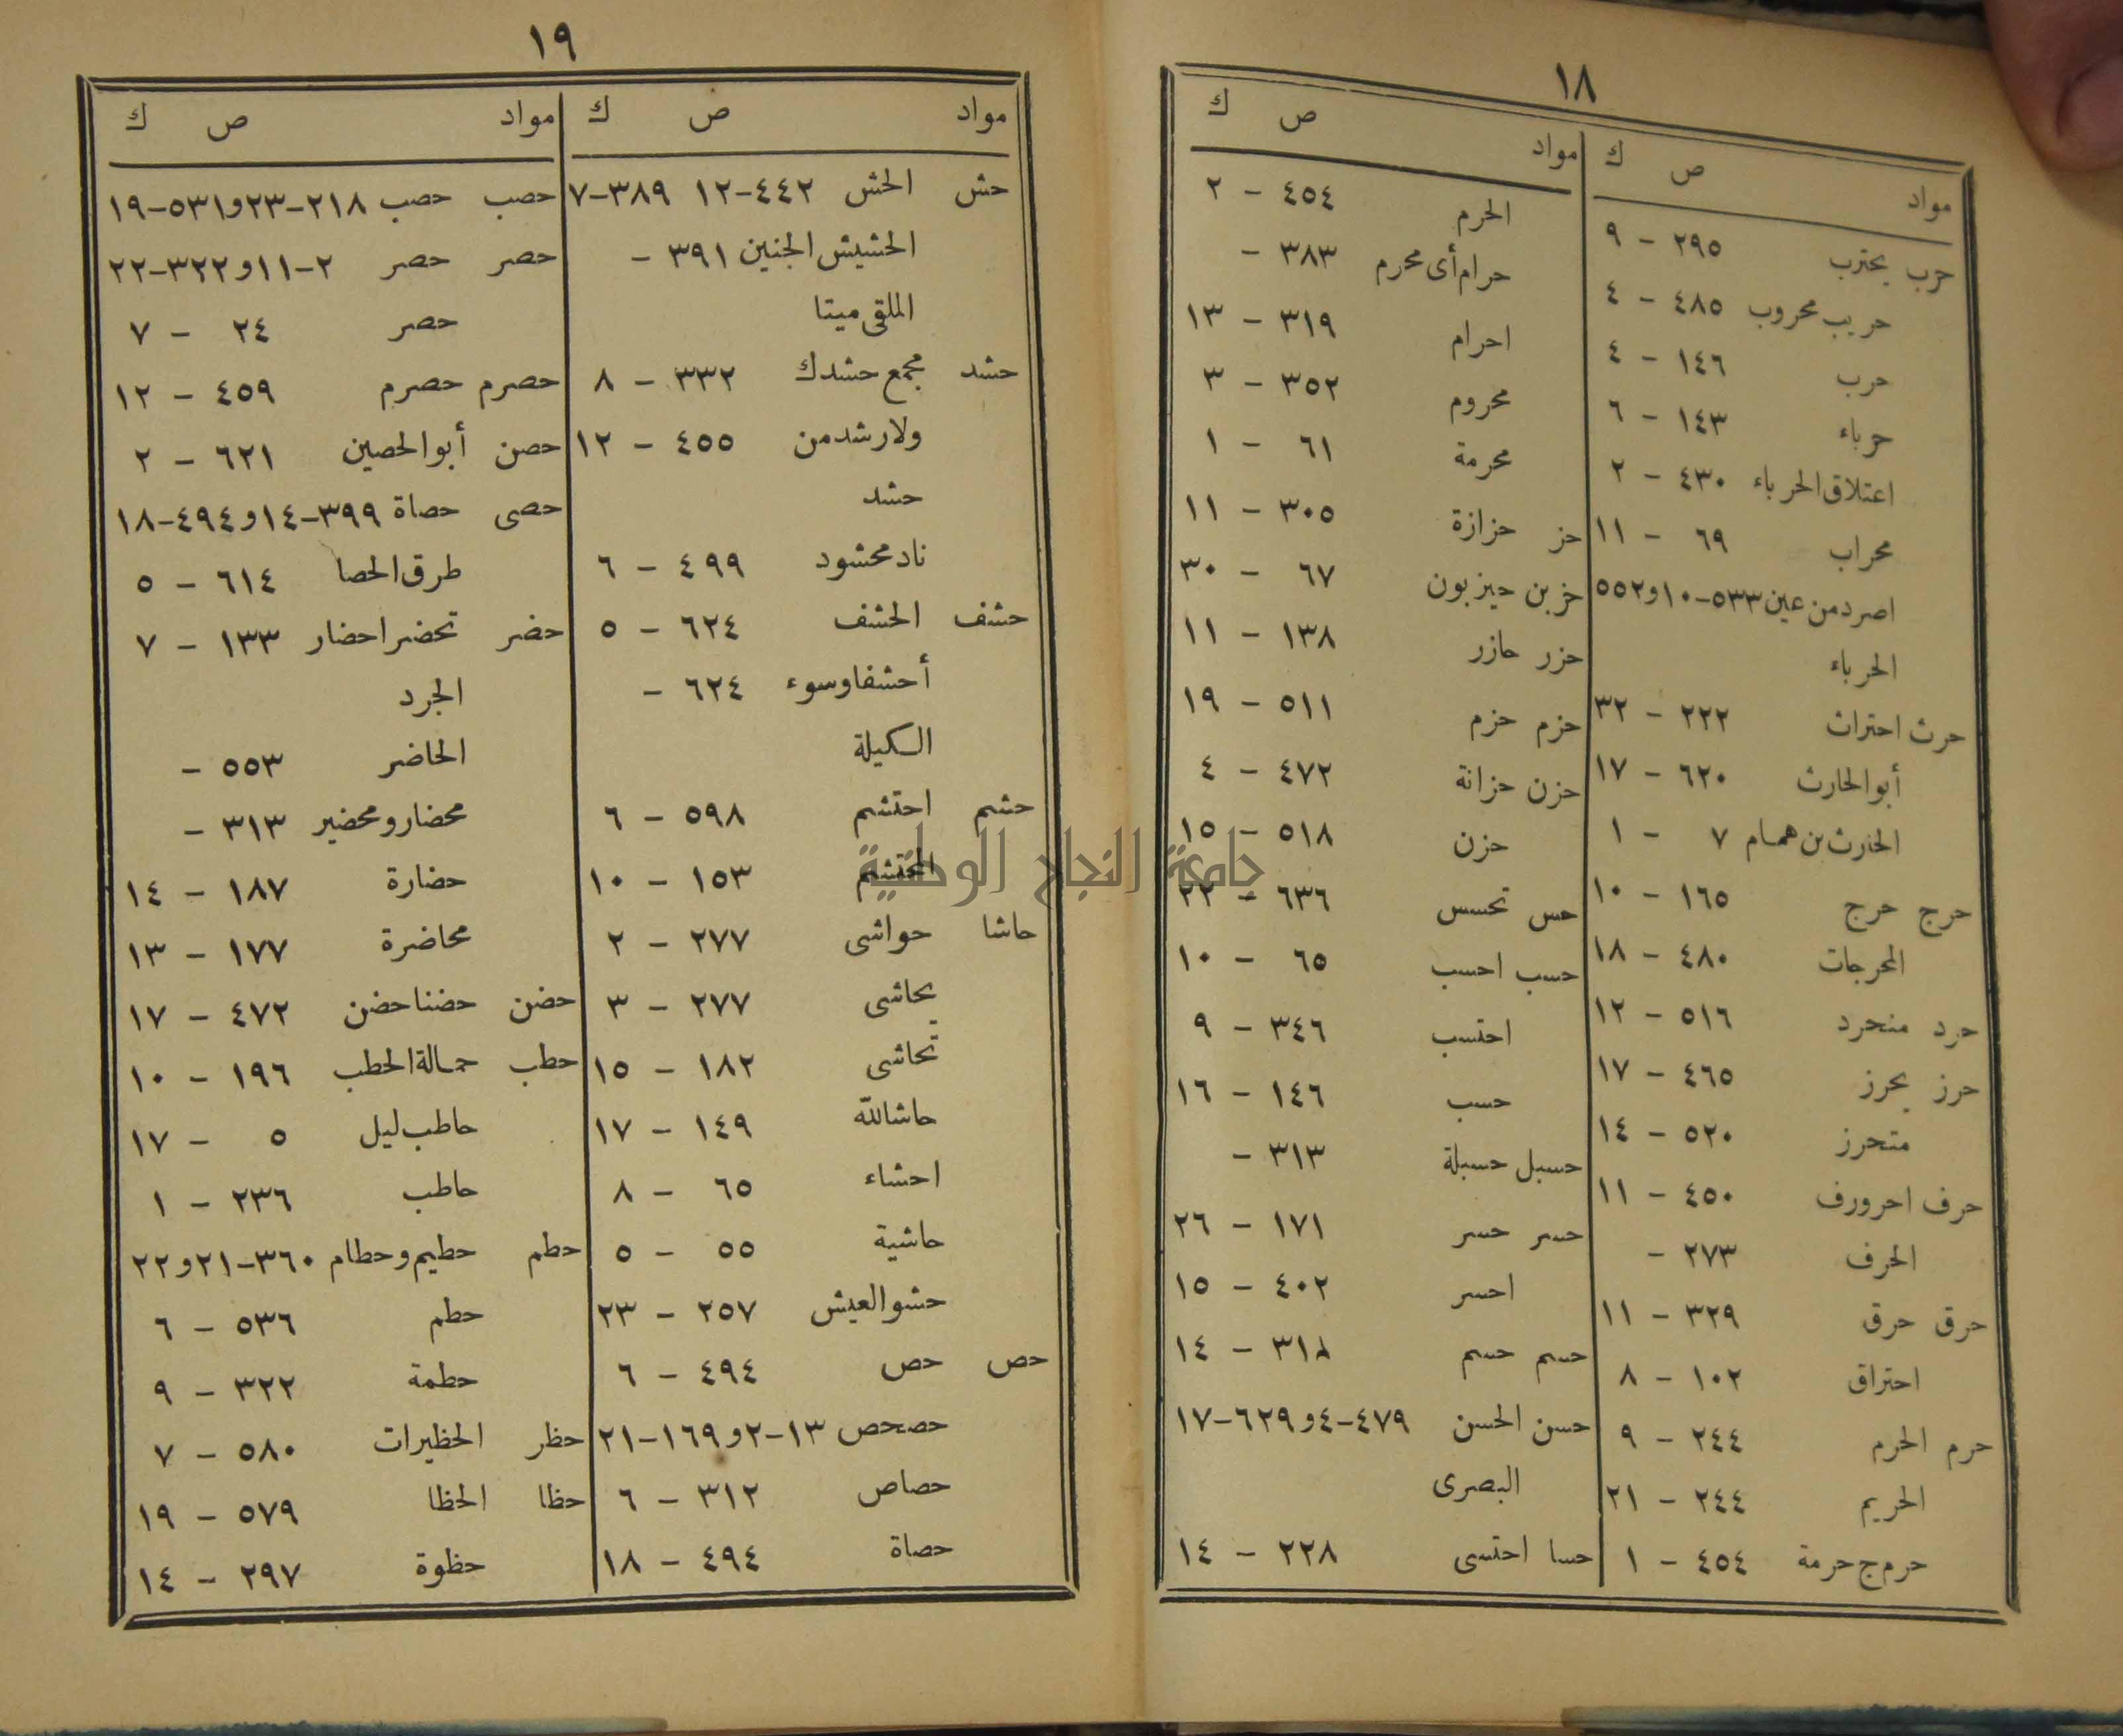 ١٨
مواد ص ك
حرب يحترب ٢٩٥ - ٩
حريب محروب ٤٨٥ - ٤
حرب ١٤٦ - ٤
حرباء ١٤٣ - ٦
اعتلاق الحرباء ٤٣٠ - ٢
محراب ٦٩ - ١١
اصرد من عين ٥٣٣-١٠ و٥٥٢
الحرباء
حرث احتراث ٢٢٢ - ٣٢
أبو الحارث ٦٢٠ - ١٧
الحارث بن همام ٧ - ١
حرج حرج ١٦٥ - ١٠
المحرجات ٤٨٠ - ١٨
حرد منحرد ٥١٦ - ١٢
حرز يحرز ٤٦٥ - ١٧
متحرز ٥٢٠ - ١٤
حرف احرورف ٤٥٠ - ١١
الحرف ٢٧٣ -
حرق حرق ٣٢٩ - ١١
احتراق ١٠٢ - ٨
حرم الحرم ٢٤٤ - ٩
الحريم ٢٤٤ - ٢١
حرم ج حرمة ٤٥٤ - ١
مواد ص ك
الحرم ٤٥٤ - ٢
حرام أى محرم ٣٨٣ -
احرام ٣١٩ - ١٣
محروم ٣٥٢ - ٣
محرمة ٦١ - ١
حز حزازة ٣٠٥ - ١١
حزبن حيزبون ٦٧ - ٣٠
حزر حازر ١٣٨ - ١١
حزم حزم ٥١١ - ١٩
حزن حزانة ٤٧٢ - ٤
حزن ٥١٨ - ١٥
حس تحسس ٦٣٦ - ٢٢
حسب احسب ٦٥ - ١٠
احتسب ٣٤٦ - ٩
حسب ١٤٦ - ١٦
حسبل حسبلة ٣١٣ -
حسر حسر ١٧١ - ٢٦
احسر ٤٠٢ - ١٥
حسم حسم ٣١٨ - ١٤
حسن الحسن ٤٧٩-٤ و٦٢٩-١٧
البصرى
حسا احتسى ٢٢٨ - ١٤
١٩
مواد ص ك
حش الحش ٤٤٢-١٢ ٣٨٩-٧
الحشيش الجنين ٣٩١ -
الملقى ميتا
حشد مجمع حشدك ٣٣٢ - ٨
ولا رشد من ٤٥٥ - ١٢
حشد
ناد محشود ٤٩٩ - ٦
حشف الحشف ٦٢٤ - ٥
أحشفا وسوء ٦٢٤ -
الكيلة
حشم احتشم ٥٩٨ - ٦
المحتشم ١٥٣ - ١٠
حاشا حواشى ٢٧٧ - ٢
يحاشى ٢٧٧ - ٣
تحاشى ١٨٢ - ١٥
حاشا لله ١٤٩ - ١٧
احشاء ٦٥ - ٨
حاشية ٥٥ - ٥
حشو العيش ٢٥٧ - ٢٣
حص حص ٤٩٤ - ٦
حصحص ١٣-٢ و١٦٩-٢١
حصاص ٣١٢ - ٦
حصاة ٤٩٤ - ١٨
مواد ص ك
حصب حصب ٢١٨-٢٣ و٥٣١-١٩
حصر حصر ٢-١١ و٣٢٢-٢٢
حصر ٢٤ - ٧
حصرم حصرم ٤٥٩ - ١٢
حصن أبو الحصين ٦٢١ - ٢
حصى حصاة ٣٩٩-١٤ و٤٩٤-١٨
طرق الحصا ٦١٤ - ٥
حضر تحضر احضار ١٣٣ - ٧
الجرد
الحاضر ٥٥٣ -
محضار ومحضير ٣١٣ -
حضارة ١٨٧ - ١٤
محاضرة ١٧٧ - ١٣
حضن حضنا حضن ٤٧٢ - ١٧
حطب حمالة الحطب ١٩٦ - ١٠
حاطب ليل ٥ - ١٧
حاطب ٢٣٦ - ١
حطم حطيم وحطام ٣٦٠-٢١ و٢٢
حطم ٥٣٦ - ٦
حطمة ٣٢٢ - ٩
حظر الحظيرات ٥٨٠ - ٧
حظا الحظا ٥٧٩ - ١٩
حظوة ٢٩٧ - ١٤
جامعة النجاح الوطنية